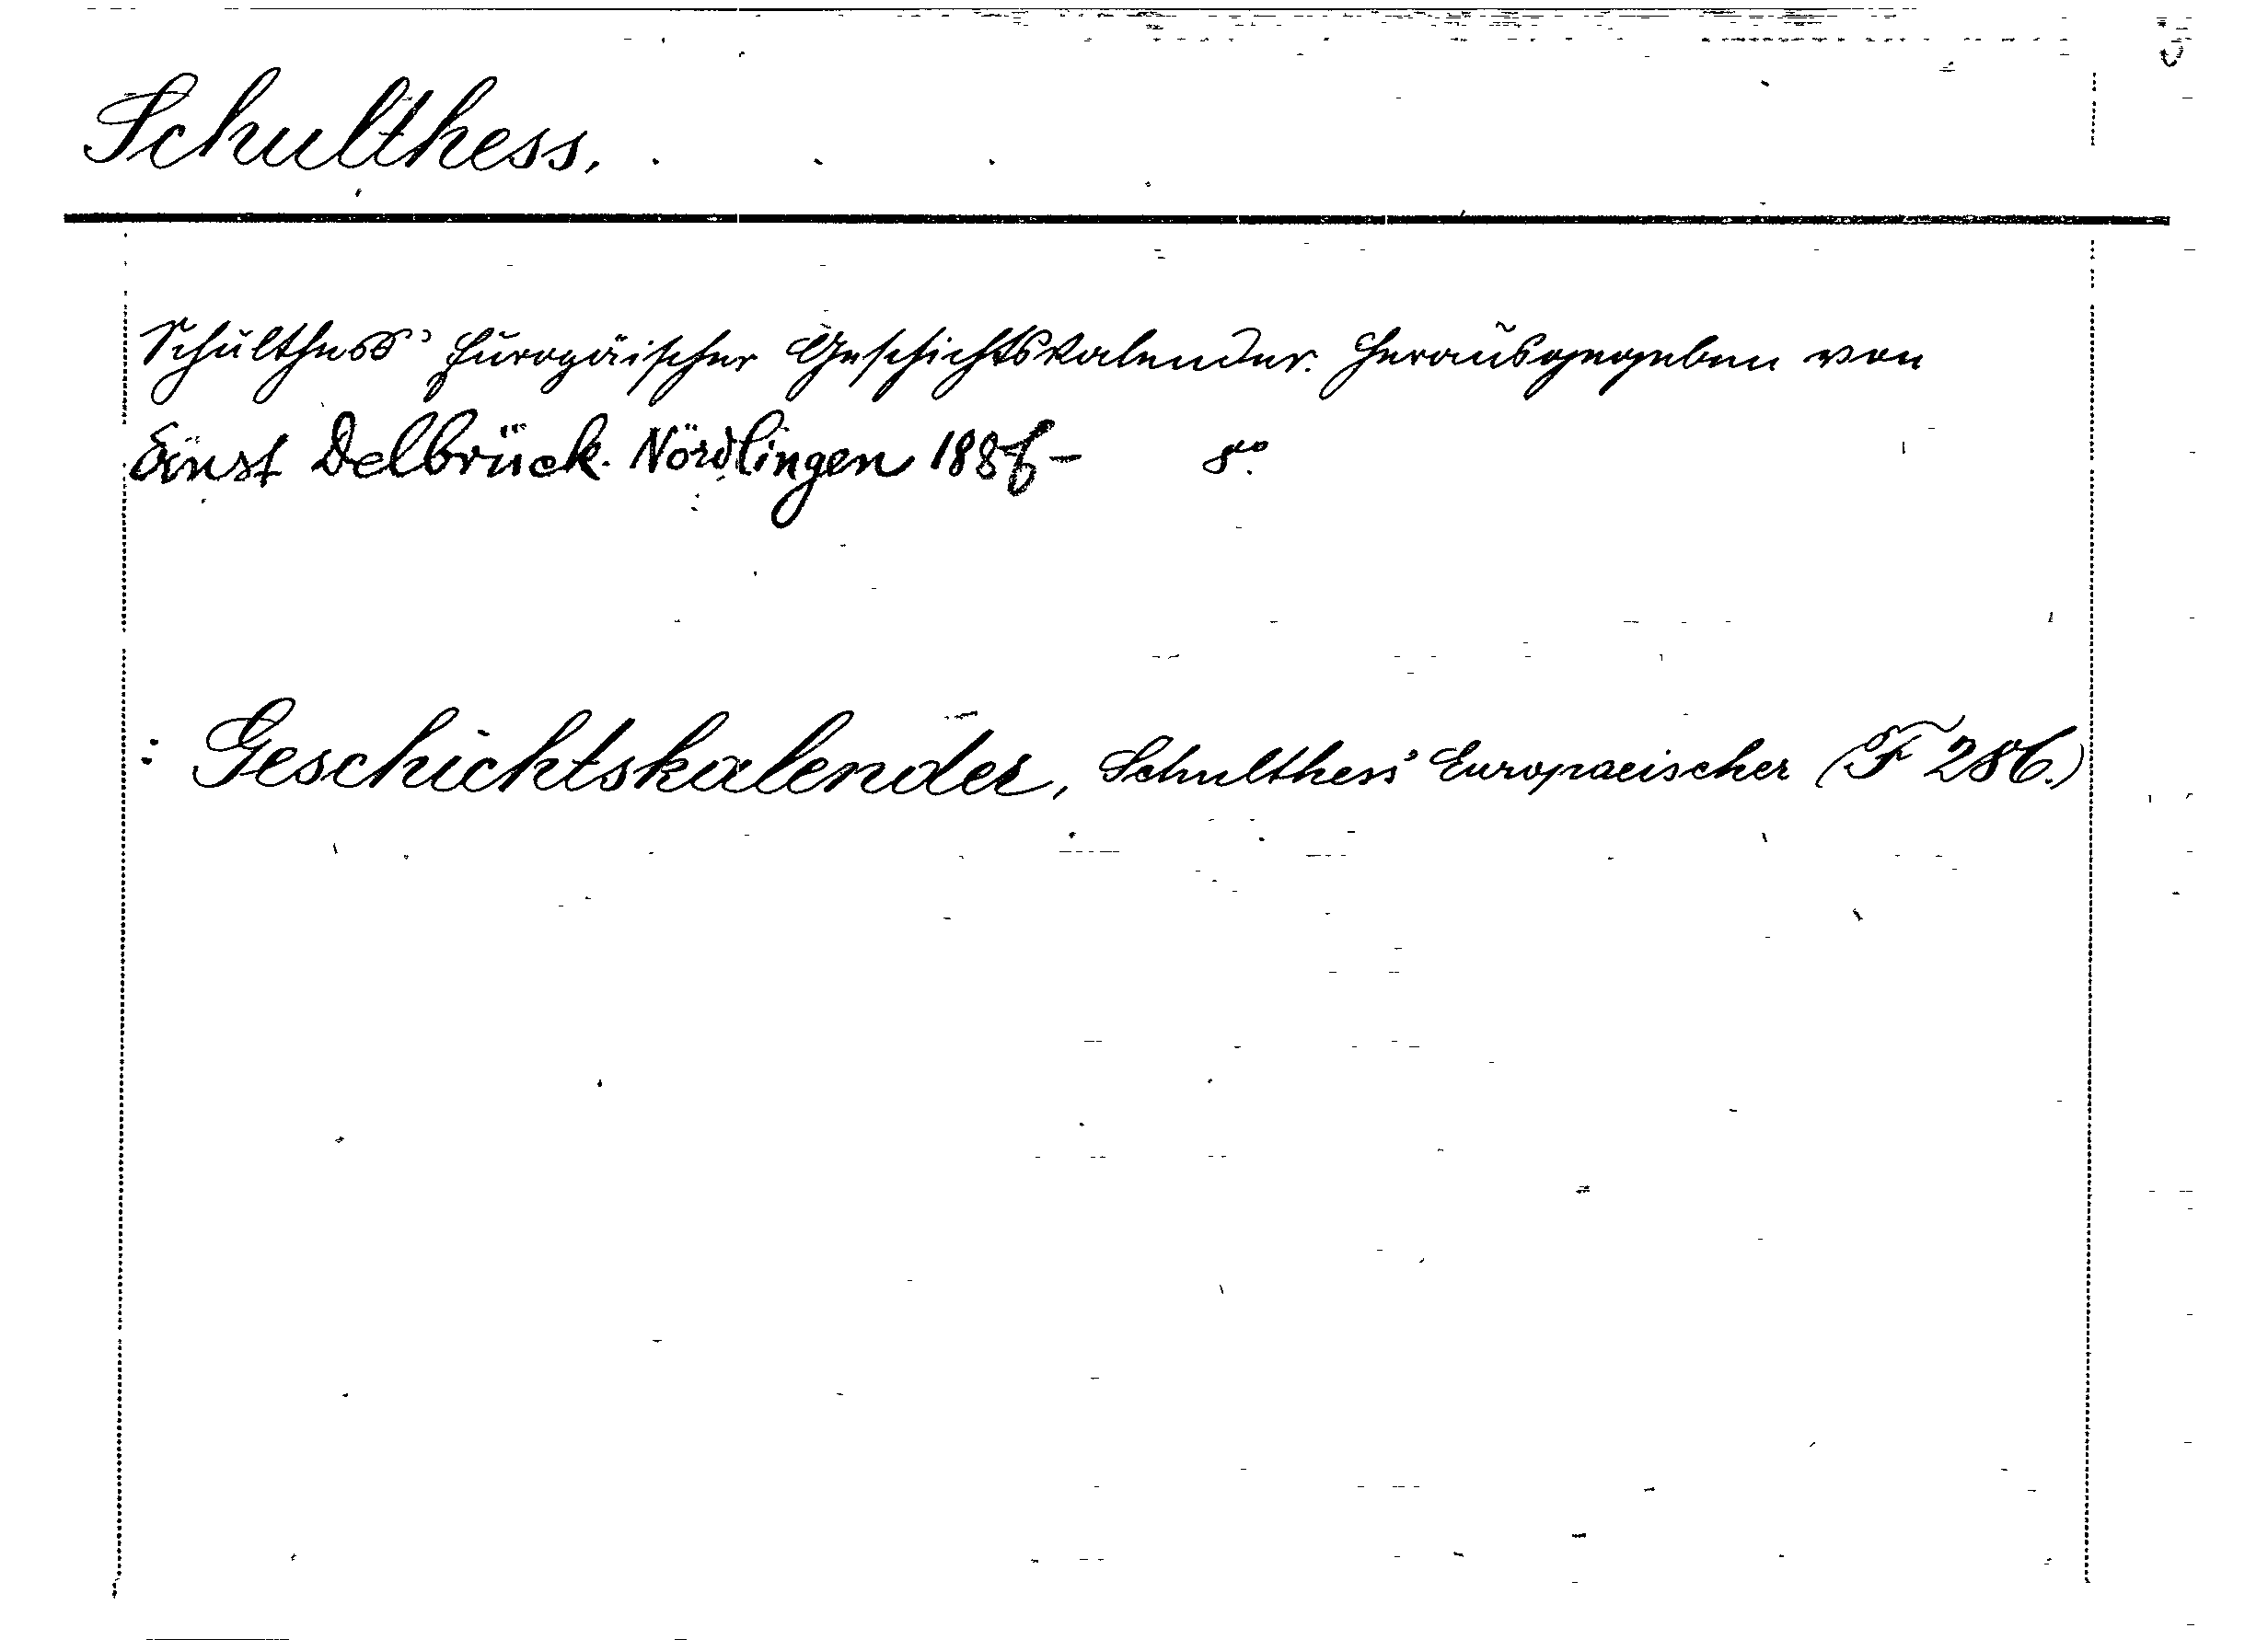 Schulthess.
Schulthess' Europäischer Geschichtskalender. Herausgegeben von
Ernst Delbrück. Nördlingen 1886- 8vo.
: Geschichtskalender, Schulthess' Europaeischer (F 286.)